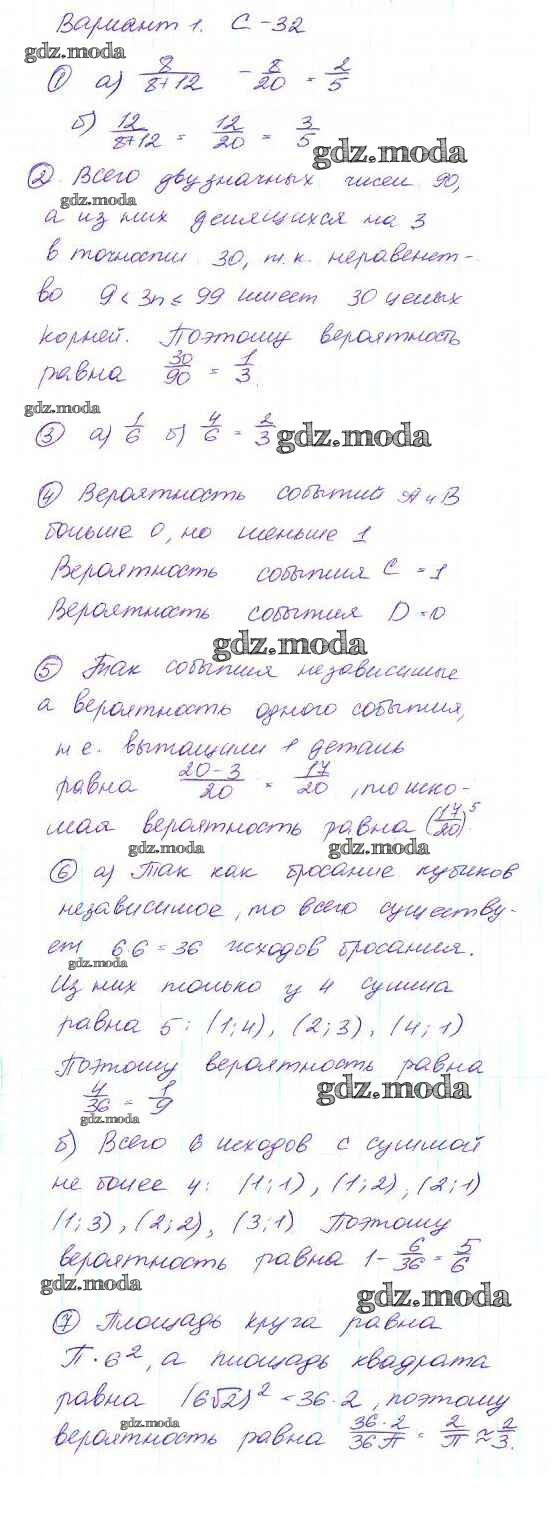 Вариант 1. С-32
gdz.moda
① а) 8/8+12 - 8/20 = 2/5
б) 12/8+12 = 12/20 = 3/5
gdz.moda
② Всего двузначных чисел 90,
gdz.moda
а из них делящихся на 3
в точности 30, т.к. неравенст-
во 9 < 3n ≤ 99 имеет 30 целых
корней. Поэтому вероятность
равна 30/90 = 1/3.
gdz.moda
③ а) 1/6 б) 4/6 = 2/3
gdz.moda
④ Вероятность событий А и В
больше 0, но меньше 1
Вероятность события С = 1
Вероятность события D = 0
gdz.moda
⑤ Так события независимые
а вероятность одного события,
т е. вытащили 1 деталь
равна 20-3/20 = 17/20, то иско-
мая вероятность равна (17/20)^5
gdz.moda gdz.moda
⑥ а) Так как бросание кубиков
независимое, то всего существу-
ет 6 6 = 36 исходов бросания.
gdz.moda
Из них только у 4 сумма
равна 5: (1;4), (2;3), (4;1)
Поэтому вероятность равна
4/36 = 1/9
gdz.moda
gdz.moda
б) Всего 6 исходов с суммой
не более 4: (1;1), (1;2), (2;1)
(1;3), (2;2), (3;1) Поэтому
вероятность равна 1 - 6/36 = 5/6
gdz.moda gdz.moda
⑦ Площадь круга равна
П·6², а площадь квадрата
равна (6√2)² = 36·2, поэтому
gdz.moda
вероятность равна 36·2/36П = 2/П ≈ 2/3.